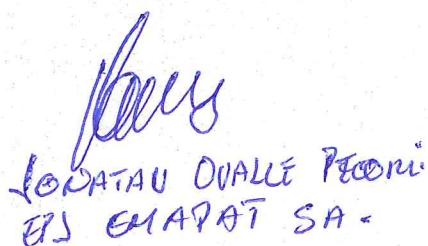 JONATAN OVALLE PECORI
EPS EMAPAT SA.